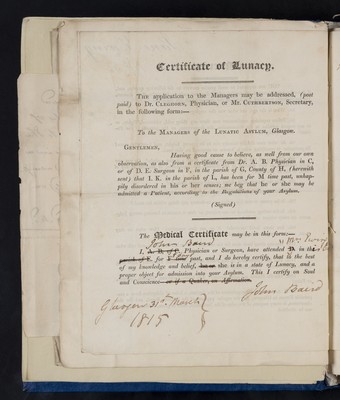 Certificate of Lunacy.
THE application to the Managers may be addressed, (post
paid) to Dr. CLEGHORN, Physician, or Mr. CUTHBERTSON, Secretary,
in the following form:—
To the MANAGERS of the LUNATIC ASYLUM, Glasgow.
GENTLEMEN,
Having good cause to believe, as well from our own
observation, as also from a certificate from Dr. A. B. Physician in C,
or of D. E. Surgeon in F, in the parish of G, County of H, (herewith
sent) that I. K. in the parish of L, has been for M time past, unhap-
pily disordered in his or her senses; we beg that he or she may be
admitted a Patient, according to the Regulations of your Asylum.
(Signed)
The Medical Certificate may be in this form:—
John Baird Mrs
I, A. B. of C. Physician or Surgeon, have attended D. in the
parish of E. for past, and I do hereby certify, that to the best
of my knowledge and belief, she is in a state of Lunacy, and a
proper object for admission into your Asylum. This I certify on Soul
and Conscience—or if a Quaker, on Affirmation.
John Baird
Glasgow 31st March
1815